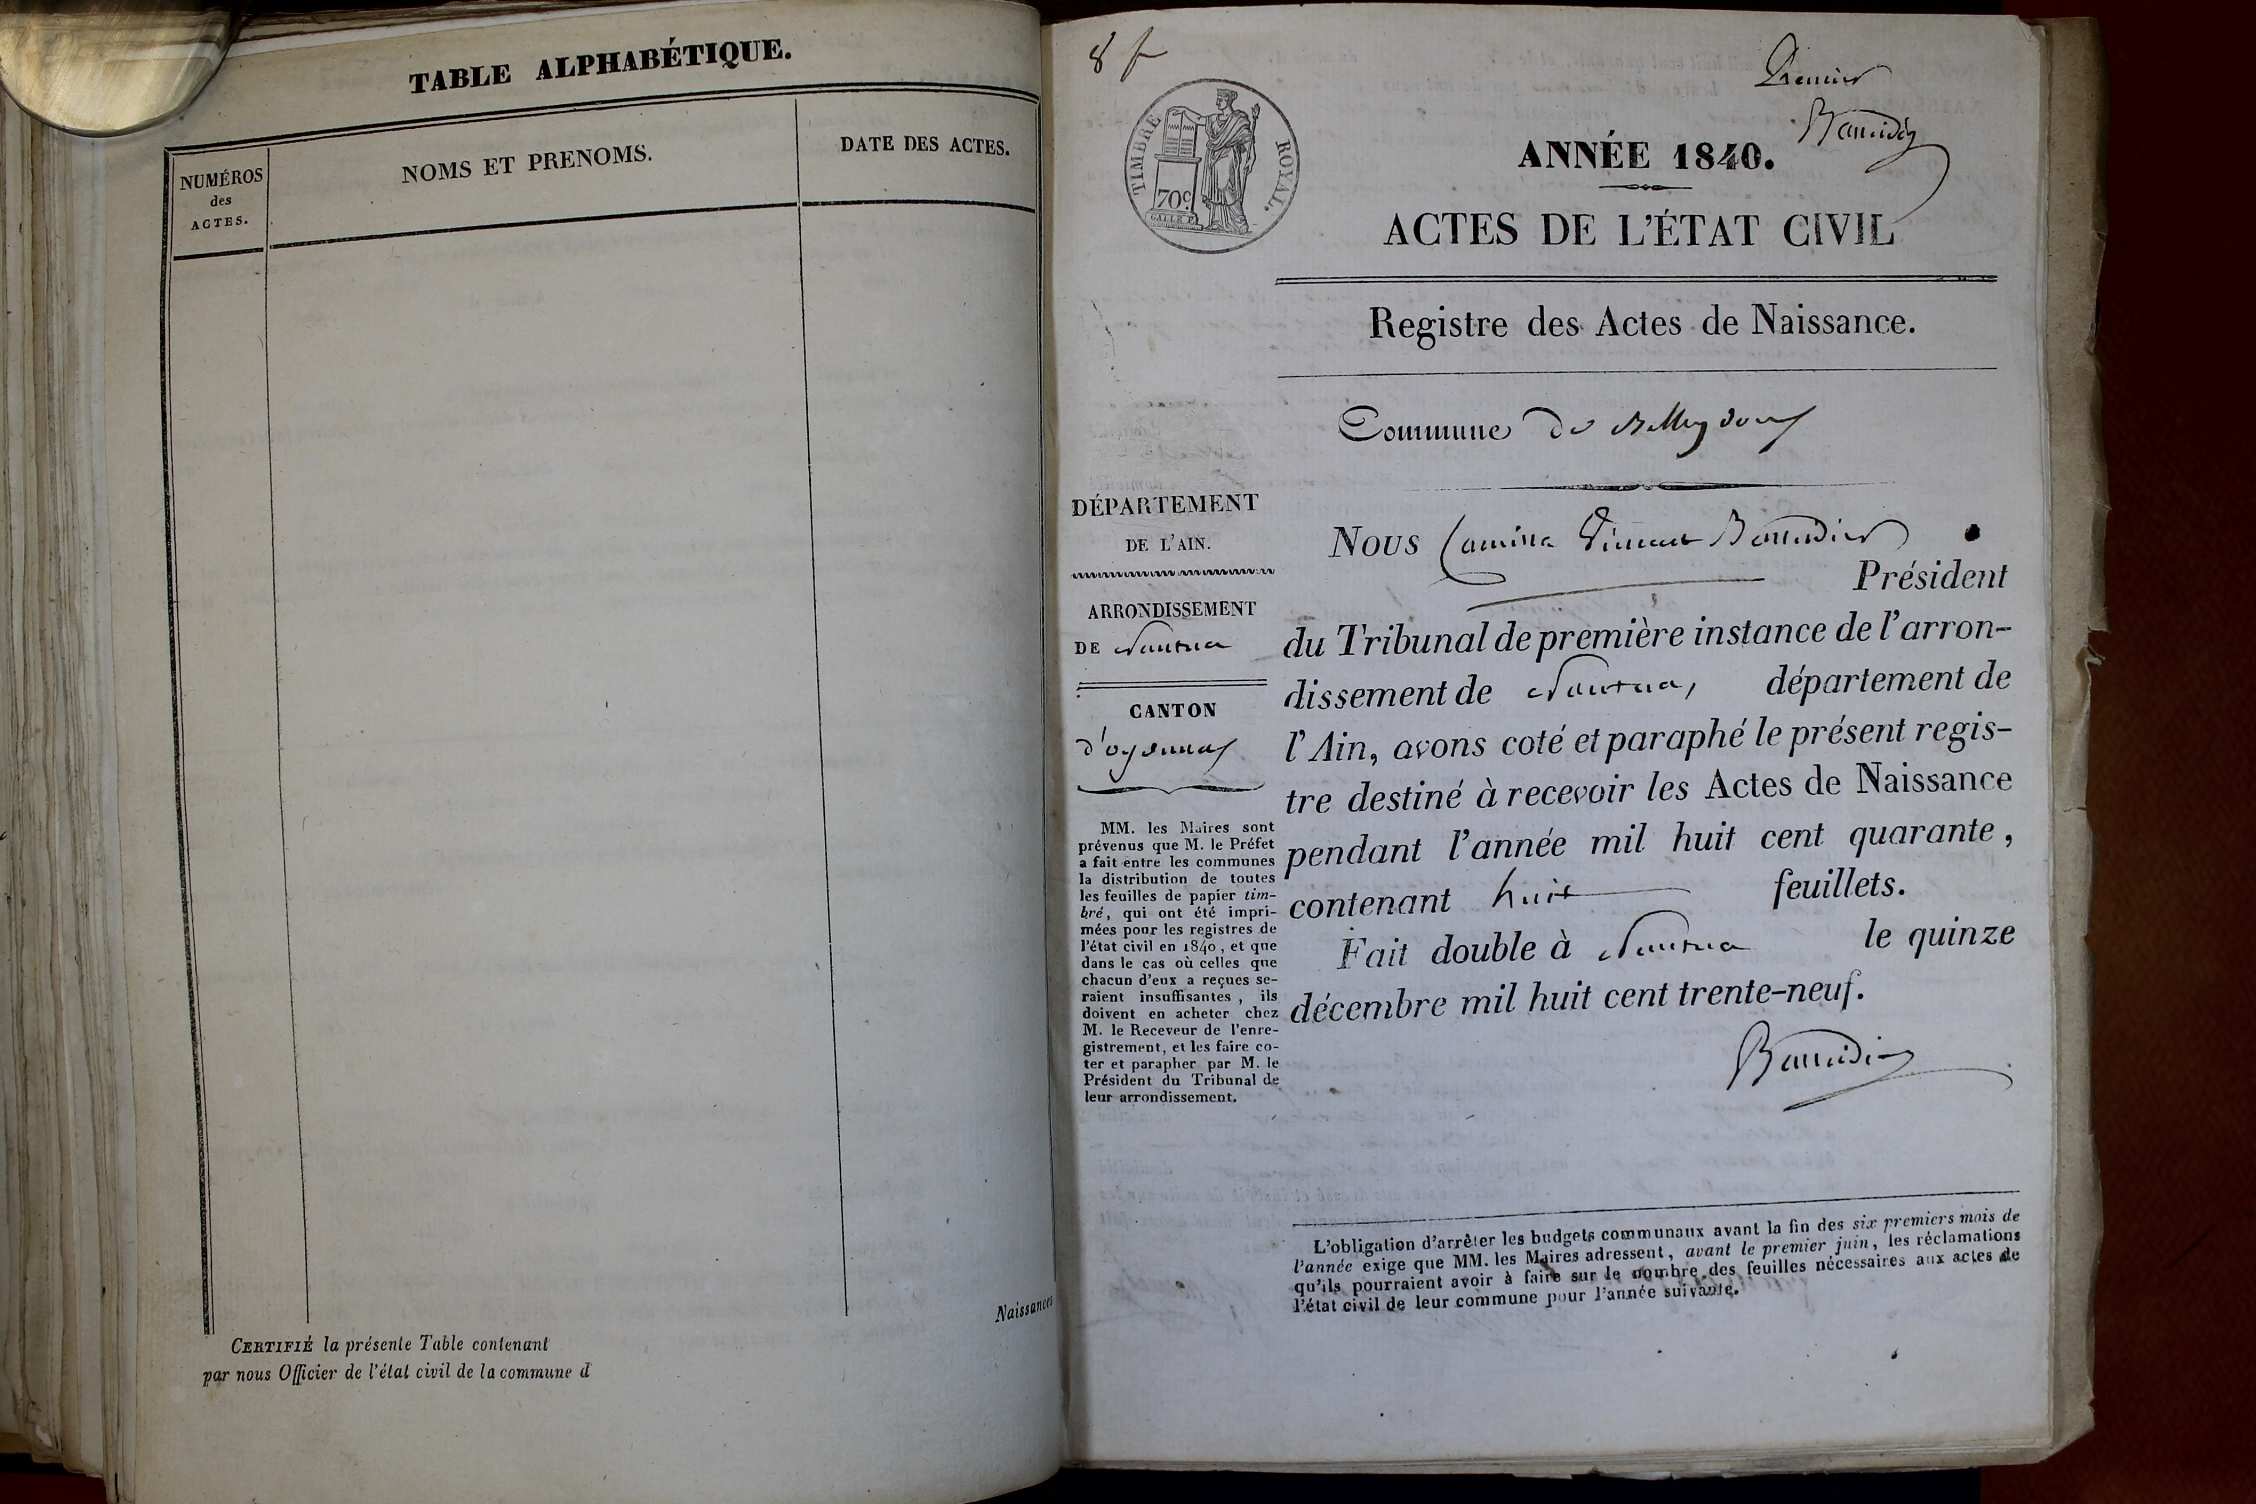 TABLE ALPHABÉTIQUE.
NUMÉROS
des
ACTES.
NOMS ET PRENOMS.
DATE DES ACTES.
Naissances
CERTIFIÉ la présente Table contenant
par nous Officier de l'état civil de la commune d
8 f
TIMBRE ROYAL.
70c.
Premier
Baudier
ANNÉE 1840.
ACTES DE L'ÉTAT CIVIL
Registre des Actes de Naissance.
Commune de Belleydoux
DÉPARTEMENT
DE L'AIN.
ARRONDISSEMENT
DE Nantua
CANTON
d'oyonnax
MM. les Maires sont
prévenus que M. le Préfet
a fait entre les communes
la distribution de toutes
les feuilles de papier tim-
bré, qui ont été impri-
mées pour les registres de
l'état civil en 1840, et que
dans le cas où celles que
chacun d'eux a reçues se-
raient insuffisantes, ils
doivent en acheter chez
M. le Receveur de l'enre-
gistrement, et les faire co-
ter et parapher par M. le
Président du Tribunal de
leur arrondissement.
NOUS Camille Vincent
Président
du Tribunal de première instance de l'arron-
dissement de Nantua, département de
l'Ain, avons coté et paraphé le présent regis-
tre destiné à recevoir les Actes de Naissance
pendant l'année mil huit cent quarante,
contenant huit feuillets.
Fait double à Nantua le quinze
décembre mil huit cent trente-neuf.
L'obligation d'arrêter les budgets communaux avant la fin des six premiers mois de
l'année exige que MM. les Maires adressent, avant le premier juin, les réclamations
qu'ils pourraient avoir à faire sur le nombre des feuilles nécessaires aux actes de
l'état civil de leur commune pour l'année suivante.